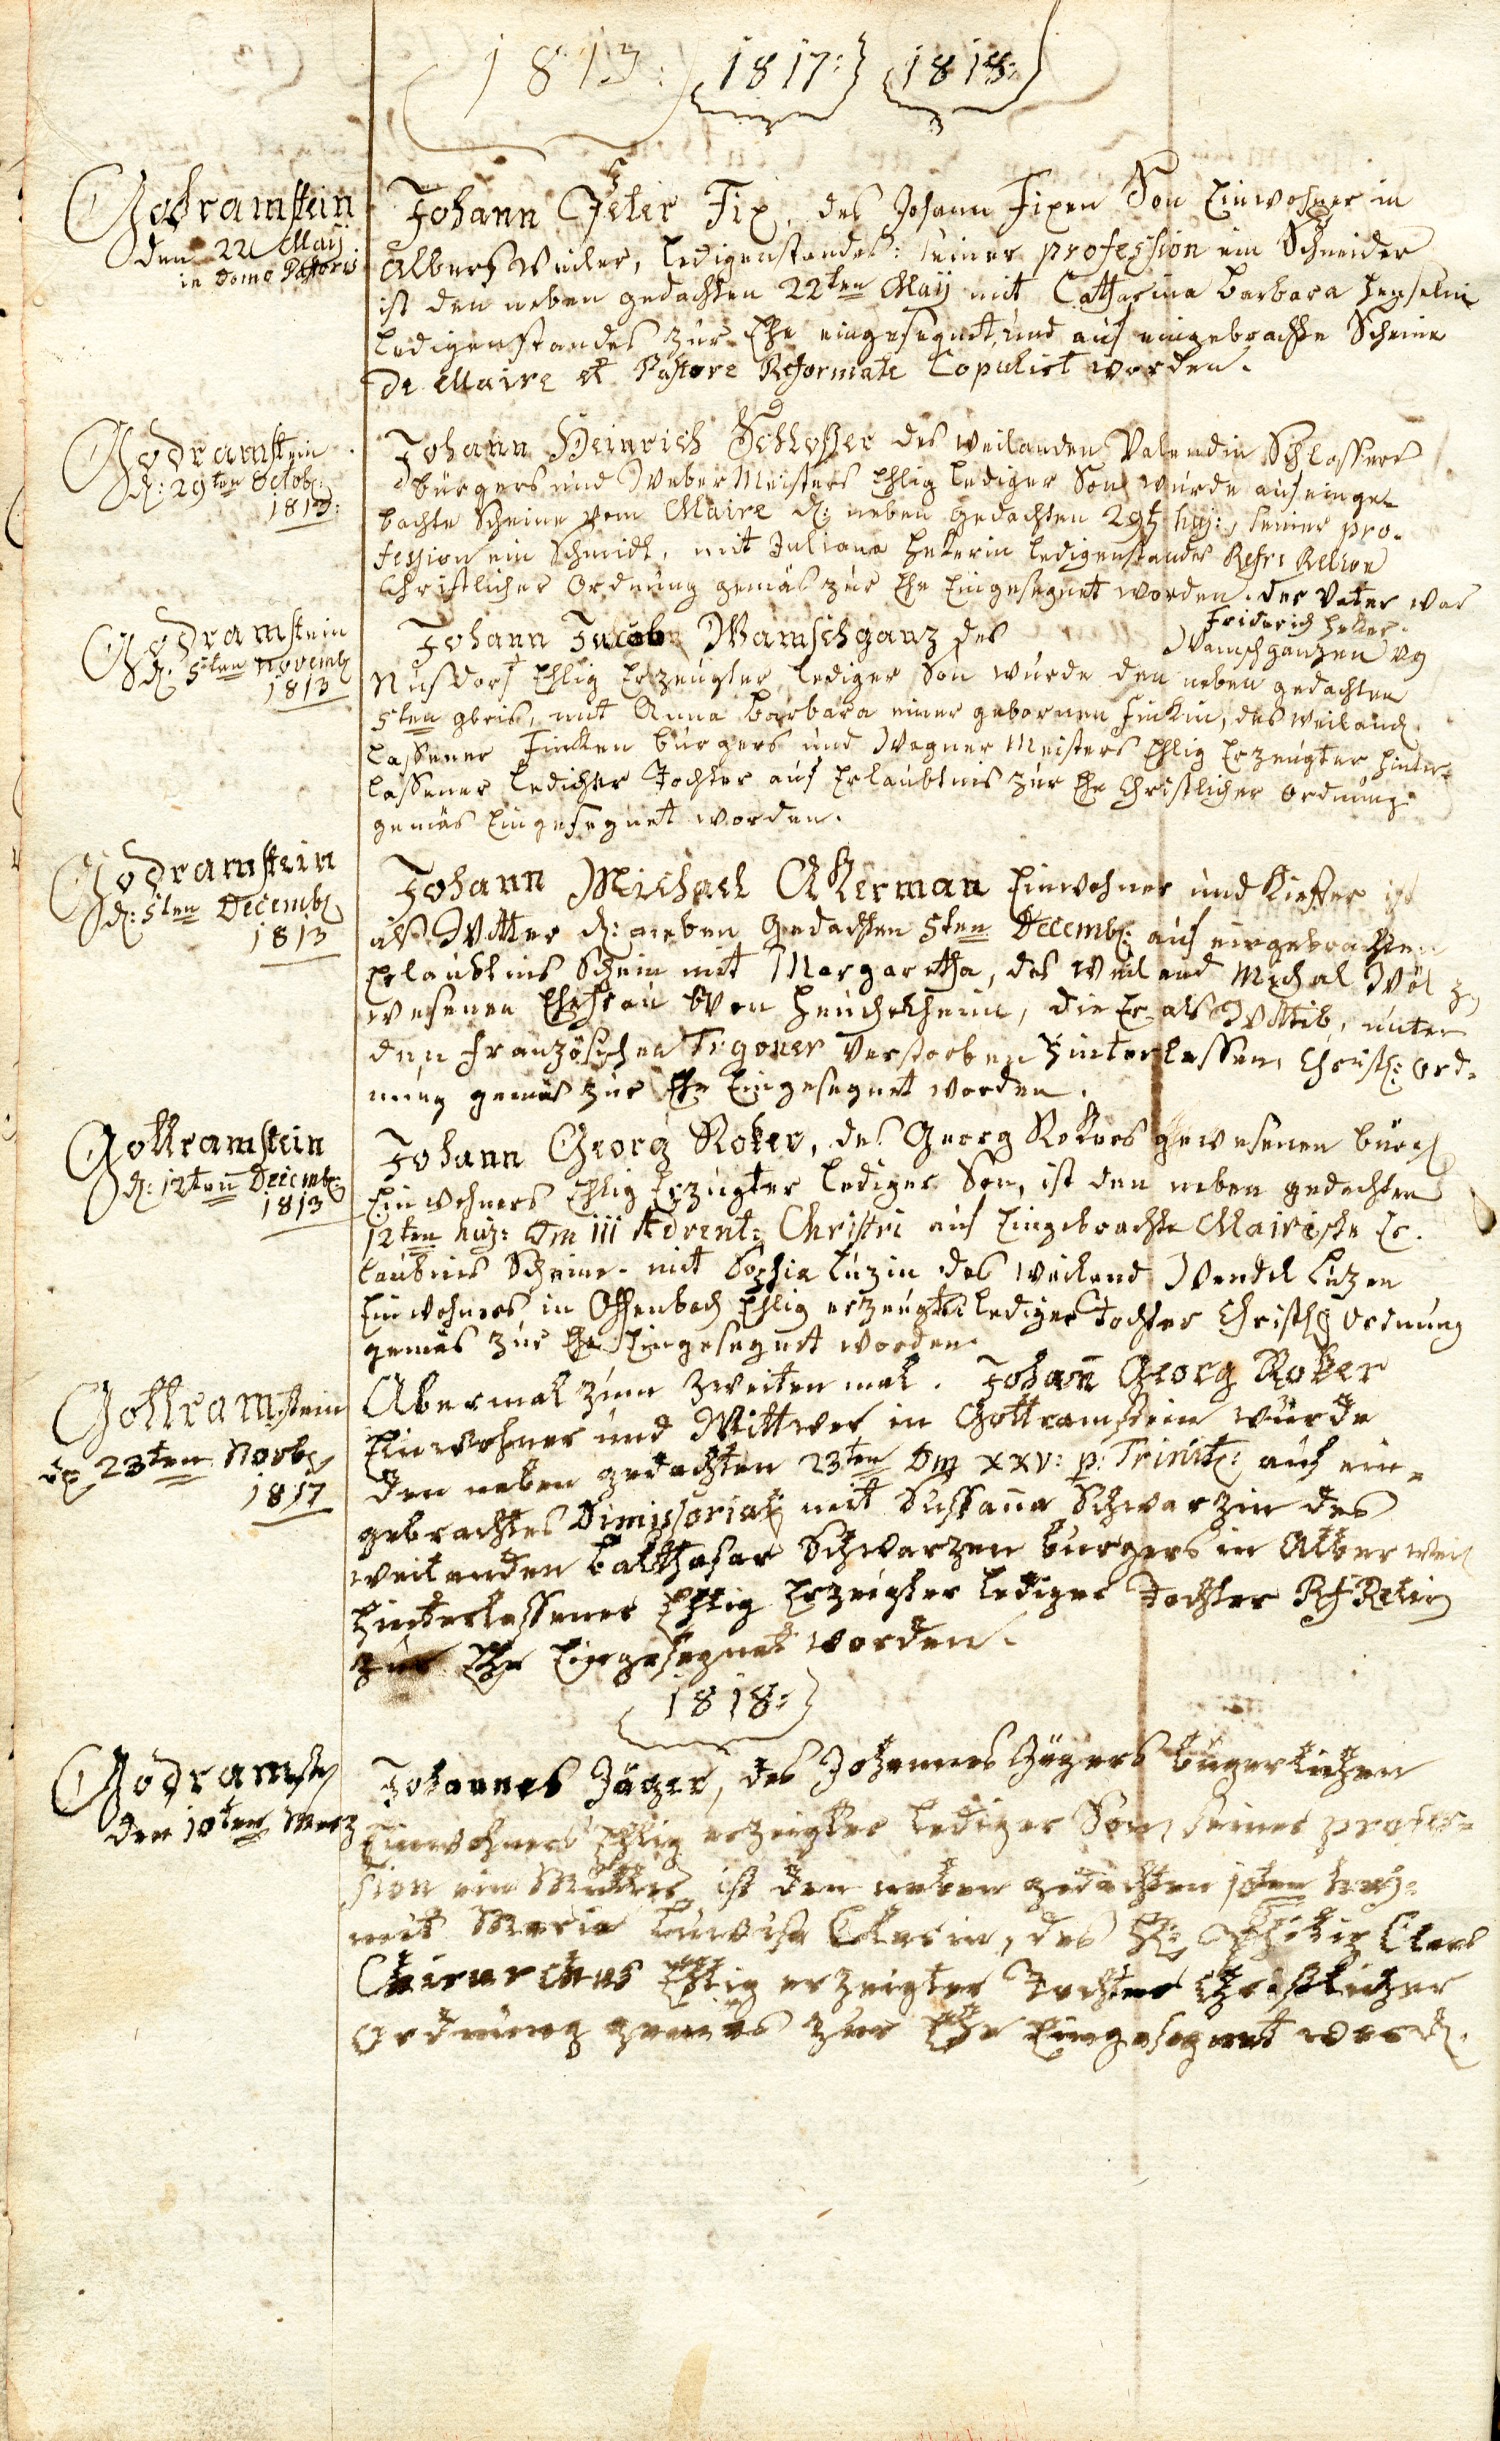 1813: 1817: 1818:
Godramstein
den 22 Maÿ
in Domo Pastoris
Johann Peter Fix, des Johann Fixen Son Einwohner in
Albersweiler, ledigenstandes: seiner profession ein Schneider
ist den neben gedachten 22ten Maÿ mit Catharina Barbara
ledigenstandes zur Ehe eingesegnet, und auf eingebrachte Scheine
de Maire et Pastore Reformate Copulirt worden.
Godramstein
d: 29ten Octob:
1813:
Johann Heinrich Schlosser des weilanden Valendin Schlossers
burgers und Weber Meisters Ehlig lediger Son wurde auf einge-
brachte Scheine vom Maire d: neben gedachten 29t huj:, seiner pro-
fession ein Schmidt, mit Juliana Hekerin ledigenstandes Refr: Relion
Christlicher Ordnung gemäs zur Ehe Eingesegnet worden. der Vater war
Friderich Heker.
Godramstein
d: 5ten Novemb
1813
Johann Jacob Wamschganz des Wamschganzen von
Nusdorf Ehlig Erzeugter lediger Son wurde den neben gedachten
5ten 9bris, mit Anna Barbara einer gebornen Finkin, des weiland
Finken burgers und Wagner Meisters Ehlig Erzeugter hinter-
lassener ledicher Tochter auf Erlaubtnis zur Ehe Christlicher Ordnung
gemäs Eingesegnet worden.
Godramstein
d: 5ten Decemb
1813
Johann Michael Akerman Einwohner und Kiefer
als Witter d: neben Gedachten 5ten Decemb: auf eingebrachten
Erlaubtnis Schein mit Margaretha, des weiland Michal
wesenen Ehefrau von Heuchelheim, die Er als Wittib, unter
den französischen Tragoner verstorben hinterlassen, Christl: Ord-
nung gemäs zur Ehe Eingesegnet worden.
Gottramstein
d: 12ten Decemb:
1813
Johann Georg Roker, des Georg Rokers gewesenen burg
Einwohners Ehlig Erzeugter lediger Son, ist den neben gedachten
12ten huj: Dm iii Advent: Christi auf Eingebrachte Mairische Er-
laubnis Scheine mit Sophia Luzin des weiland Wendel Luzen
Einwohners in Offenbach Ehlig erzeugter lediger Tochter Christl: Ordnung
gemäs zur Ehe Eingesegnet worden
Gottramstein
d: 23ten Novb
1817
Abermal zum zweiten mal. Johann Georg Roker
Einwohner und Wittwer in Gottramstein wurde
den neben gedachten 23ten Dm XXV: p: Trinit: auf ein-
gebrachtes Dimissorial mit Susanna Schwarzin des
weilanden Balthasar Schwarzen burgers in Alberweil
hinterlassener Ehlig Erzeugter lediger Tochter Rf Relig
zur Ehe Eingesegnet worden.
1818:
Godramst
den 10ten Merz
Johannes Jäger, des Johannes Jägers bürgerlichen
Einwohners Ehlig erzeigter lediger Son, seiner profes-
sion ein Müller, ist den neben gedachten 10ten huj:
mit Maria Luwisa Clarin, des H: Philip Clars
Chirurchus Ehlig erzeigter Tochter Christlicher
Ordnung gemäs zur Ehe Eingesegnet word.